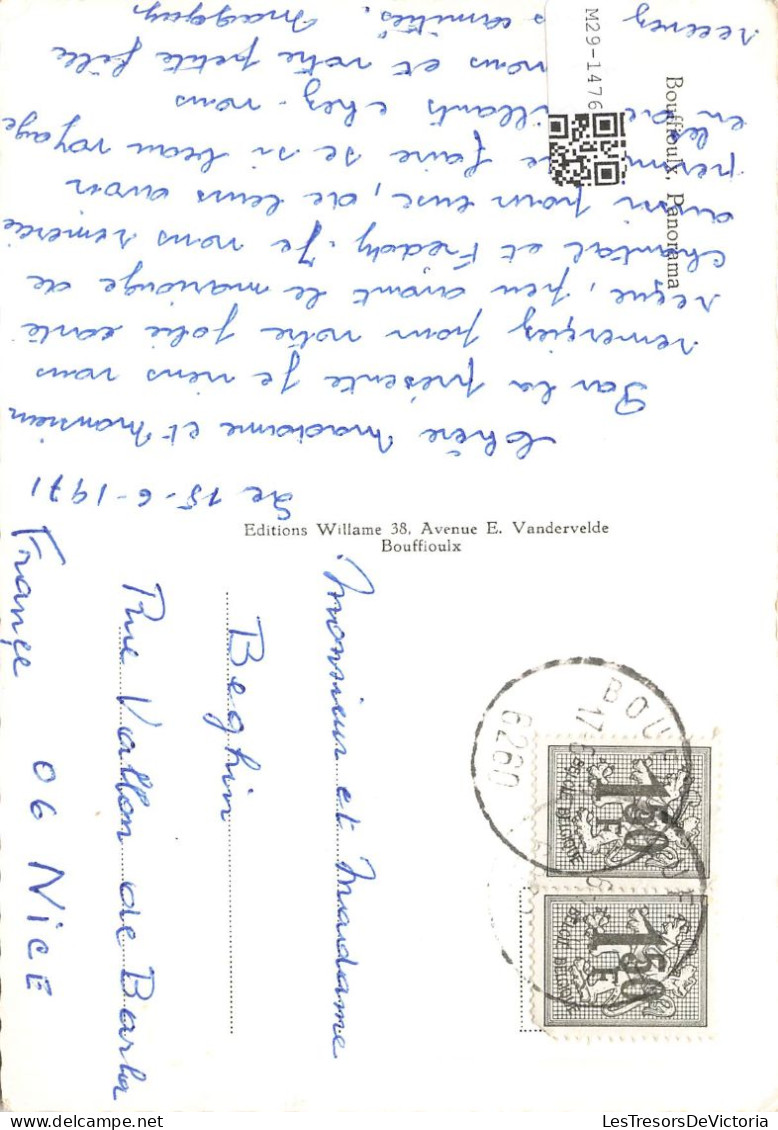 Bouffioulx, Panorama
M29-1476
Le 15-6-1971
Chère Madame et Monsieur
Par la présente je viens vous
remerciez pour votre jolie carte
reçue, peu avant le mariage de
Chantal et Freddy. Je vous remercie
aussi pour eux, de leurs avoir
faire se si beau voyage
en chez-vous
vous et votre petite fille
recevez amitiés.
Editions Willame 38, Avenue E. Vandervelde
Bouffioulx
Monsieur et Madame
Beghin
Rue Vallon de Barla
06 NiCE
Françe
BOUFF
17-6
6260
BELGIE BELGIQUE
1F50
BELGIE BELGIQUE
1F50
LesTresorsDeVictoria